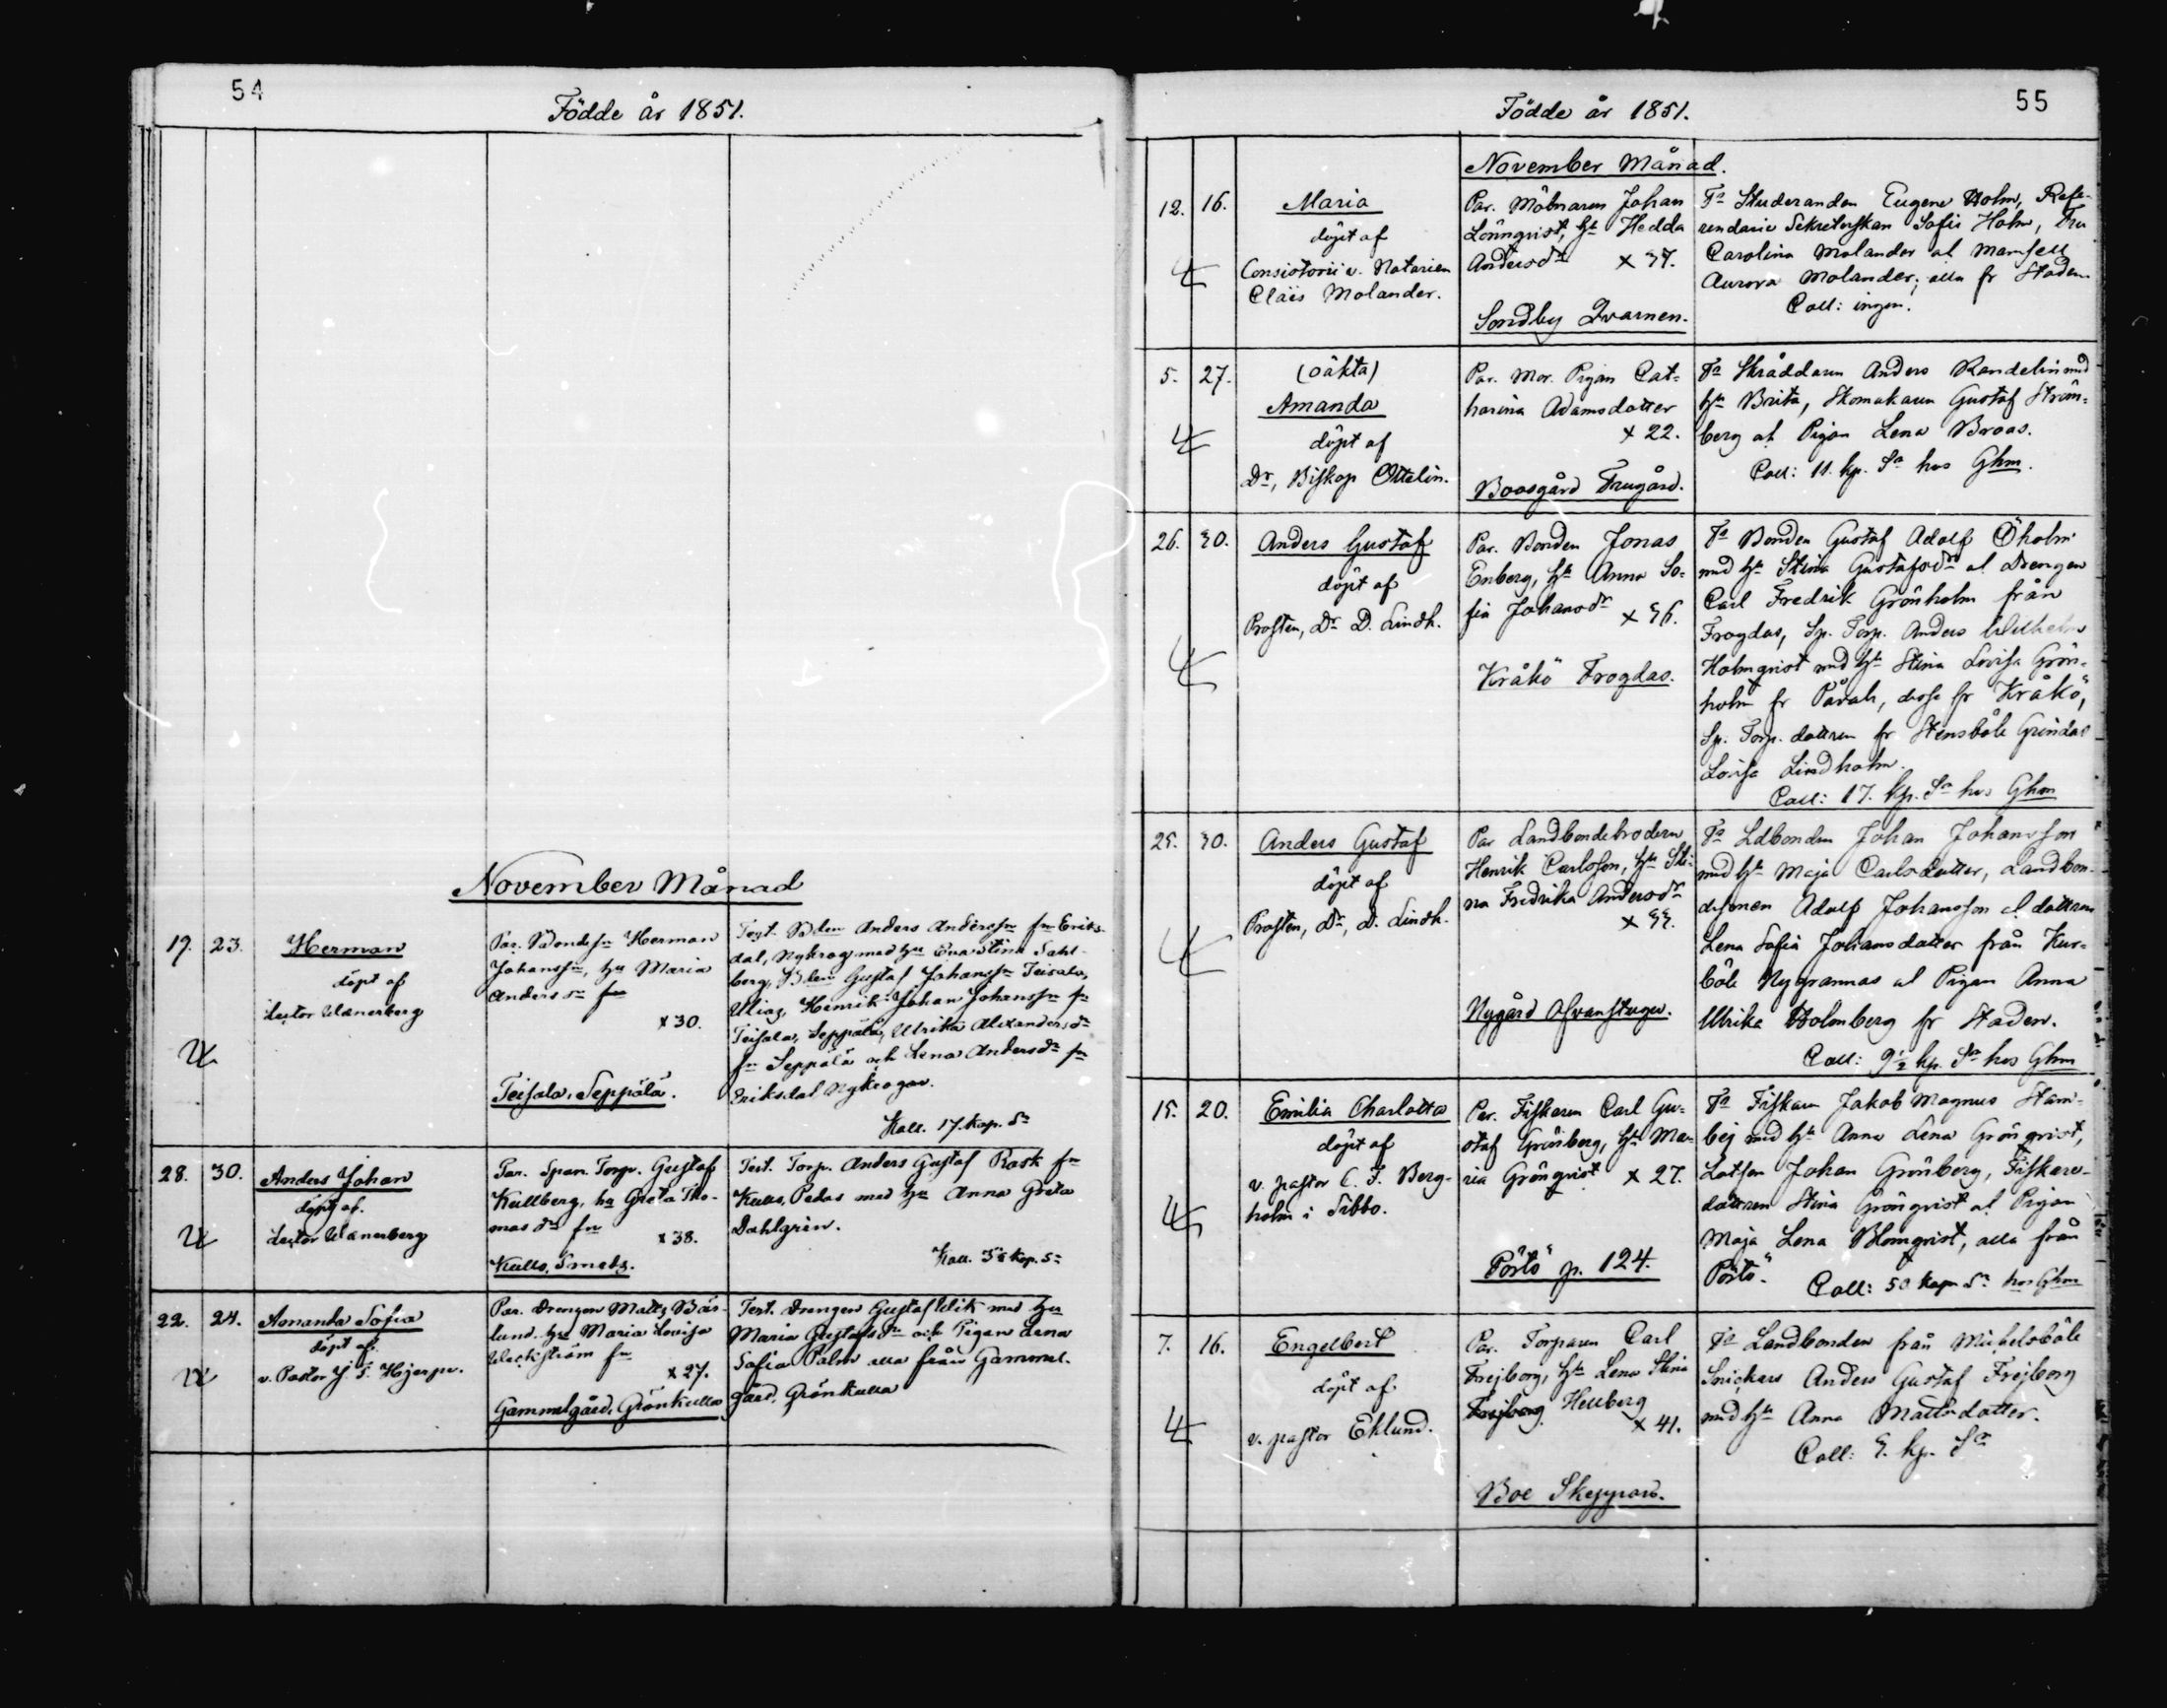 54
Födde år 1851.
November Månad
19. 23. Herman
döpt af
Lector Wanerberg
Par. Bondes. Herman
Johanss., hu Maria
Anders dr fr
x 30.
Teisala, Seppälä.
Test. Anders Anderss. fr Eriks-
dal, Nykrog med hu Eva Stina Sahl-
berg, Gustaf Johanss. Teisala,
Uliag, Henrik Johan Johanss. fr
Teisala, Seppälä, Ulrika Alexanders dr
fr Seppälä och Lena Anders dr fr
Eriksdal Nykrogar.
Kall. 17. kop. Sr
28. 30. Anders Johan
döpt af.
Lector Wanerberg
Par. Span. Torp. Gustaf
Kullberg, hu Greta Tho-
mas dr fr
x 38.
Kullo, Smeds.
Test. Torp. Anders Gustaf Rask fr
Kullo, Pedas med hu Anna Greta
Dahlgren.
Kall. kop. Sr
22. 24. Amanda Sofia
döpt af.
v. Pastor J. F. Hjerpe.
Par. Drengen Matts Bäs-
lund. hu Maria Lovisa
Weckström fr
x 27.
Gammelgård, Grönkulla
Test. Drengen Gustaf Wik med hu
Maria Gustafs dr och Pigan Lena
Sofia Palm alla från Gammel-
gård, Grönkulla
55
Födde år 1851.
November Månad.
12. 16. Maria
döpt af
Consistorii v. Notarien
Claës Molander.
Par. Mölnaren Johan
Lönnqvist, hu Hedda
Andersdr x 37.
Sondby Qvarnen.
Fa Studeranden Eugene Holm, Refe-
rendarie Sekreterskan Sofie Holm, Fru
Carolina Molander ol Mamsell
Aurora Molander; alla fr Staden.
Coll: ingen.
5. 27. (oäkta)
Amanda
döpt af
Dr, Biskop Ottelin.
Par. Mor. Pigan Cat-
harina Adamsdotter
x 22.
Boosgård Frugård.
Fa Skräddaren Anders Randelin med
hu Brita, Skomakaren Gustaf Ström-
berg ol Pigan Lena Broas.
Coll: 11. kp. Sr hos Ghm.
26. 30. Anders Gustaf
döpt af
Prosten, Dr D. Lindh.
Par. Bonden Jonas
Enberg, hu Anna So-
fia Johansdr x 36.
Kråkö Frogdas.
Fa Bonden Gustaf Adolf Öholm
med hu Stina Gustafsdr ol Drengen
Carl Fredrik Grönholm från
Frogdas, Sp. Torp. Anders Wilhelm
Holmqvist med hu Stina Lovisa Grön-
holm fr Påvals, desse fr Kråkö,
Sp. Torp. dottren fr Stensböle Grindas
Lovisa Lindholm.
Coll: 17. kp. Sr hos Ghm
25. 30. Anders Gustaf
döpt af
Prosten, Dr, D. Lindh.
Par Landbondebrodern
Henrik Carlsson, hu Sti-
na Fredrika Andersdr
x 33.
Nygård Ofvanstugu.
Fa Ldbonden Johan Johansson
med hu Maja Carlsdotter, Landbon-
desonen Adolf Johansson ol dottren
Lena Sofia Johansdotter från Kur-
böle Nygrannas ol Pigan Anna
Ulrika Holmberg fr Staden.
Coll: 9½ kp. Sr hos Ghm
15. 20. Emilia Charlotta
döpt af
v. pastor C. F. Berg-
holm i Sibbo.
Par. Fiskaren Carl Gu-
staf Grönberg, hu Ma-
ria Grönqvist x 27.
Pörtö p. 124.
Fa Fiskaren Jakob Magnus Stam-
bej med hu Anna Lena Grönqvist,
Lotsen Johan Grönberg, Fiskare-
dottren Stina Grönqvist ol Pigan
Maja Lena Blomqvist, alla från
Pörtö. Coll: 50 kop Sr hos Ghm
7. 16. Engelbert
döpt af
v. pastor Eklund.
Par. Torparen Carl
Frejborg, hu Lena Stina
Frejborg Hellberg
x 41.
Boe Skeppars.
Fa Landbonden från Mickelsböle
Snickars Anders Gustaf Frejborg
med hu Anna Mattsdotter.
Coll: 3. kp. Sr